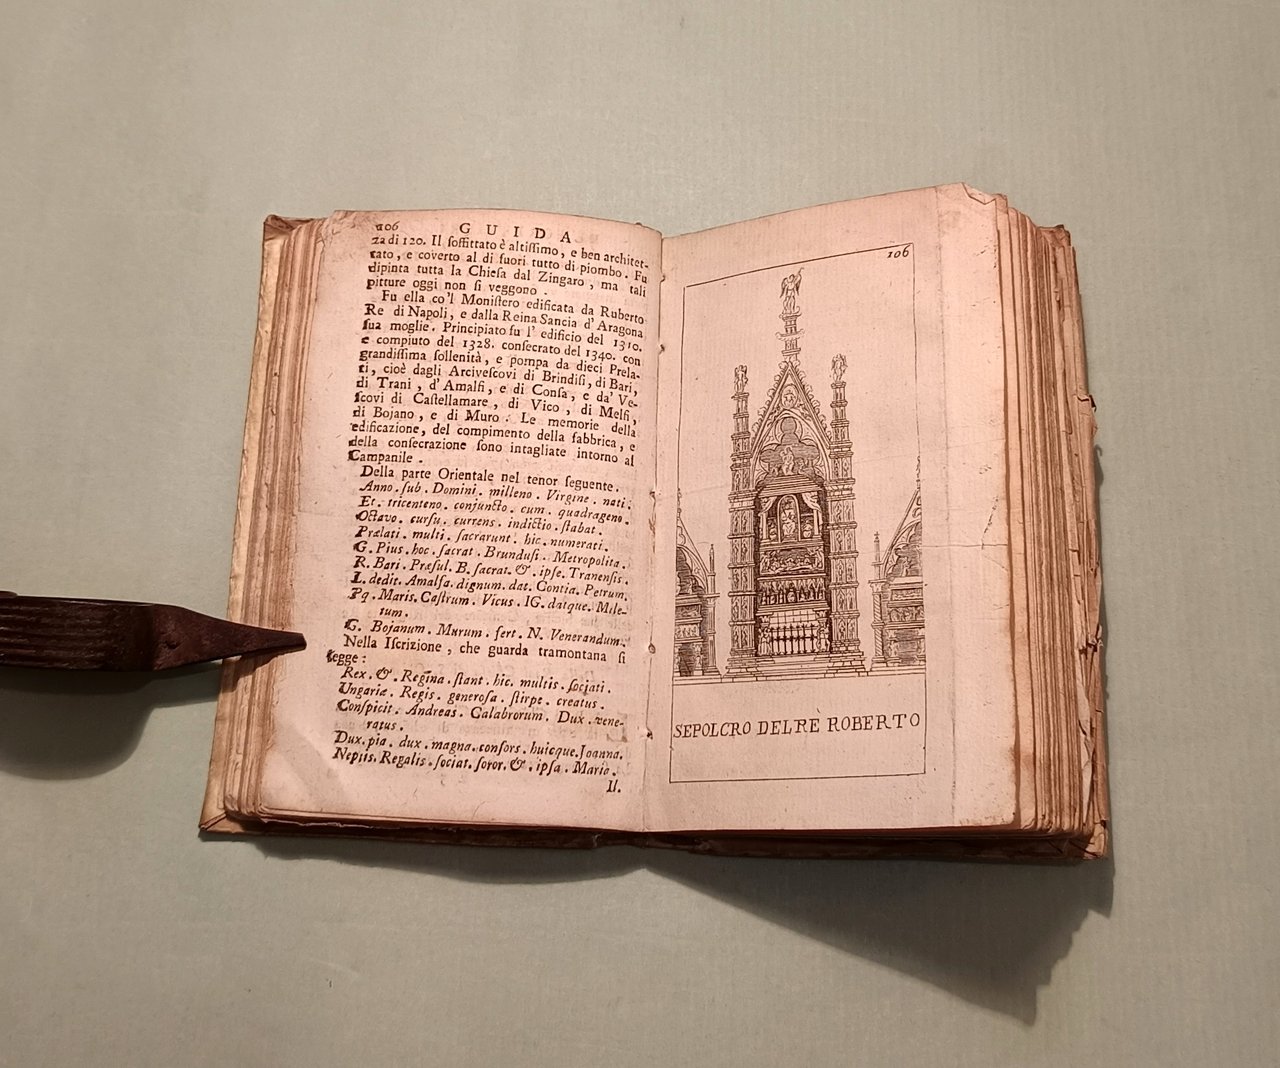 106 GUIDA
za di 120. Il ſoffittato è altiſſimo, e ben architet-
tato, e coverto al di fuori tutto di piombo. Fu
dipinta tutta la Chieſa dal Zingaro, ma tali
pitture oggi non ſi veggono.
Fu ella co'l Moniſtero edificata da Ruberto
Re di Napoli, e dalla Reina Sancia d'Aragona
ſua moglie. Principiato fu l'edificio del 1310.
e compiuto del 1328. conſecrato del 1340. con
grandiſſima ſollenità, e pompa da dieci Prela-
ti, cioè dagli Arciveſcovi di Brindiſi, di Bari,
di Trani, d'Amalfi, e di Conſa, e da' Ve-
ſcovi di Caſtellamare, di Vico, di Melfi,
di Bojano, e di Muro. Le memorie della
edificazione, del compimento della fabbrica, e
della conſecrazione ſono intagliate intorno al
Campanile.
Della parte Orientale nel tenor ſeguente.
Anno. ſub. Domini. milleno. Virgine. nati.
Et. tricenteno. conjuncto. cum. quadrageno.
Octavo. curſu. currens. indictio. ſtabat.
Prælati. multi. ſacrarunt. hic. numerati.
G. Pius. hoc. ſacrat. Brunduſi. Metropolita.
R. Bari. Præſul. B. ſacrat. &. ipſe. Tranenſis.
L. dedit. Amalfa. dignum. dat. Contia. Petrum.
Pq. Maris. Caſtrum. Vicus. IG. datque. Mile-
tum.
G. Bojanum. Murum. fert. N. Venerandum.
Nella Iſcrizione, che guarda tramontana ſi
legge:
Rex. &. Regina. ſtant. hic. multis. ſociati.
Ungariæ. Regis. generoſa. ſtirpe. creatus.
Conſpicit. Andreas. Calabrorum. Dux. vene-
ratus.
Dux. pia. dux. magna. conſors. huicque. Joanna.
Neptis. Regalis. ſociat. ſoror. &. ipſa. Maria.
Il.
106
SEPOLCRO DEL RE ROBERTO